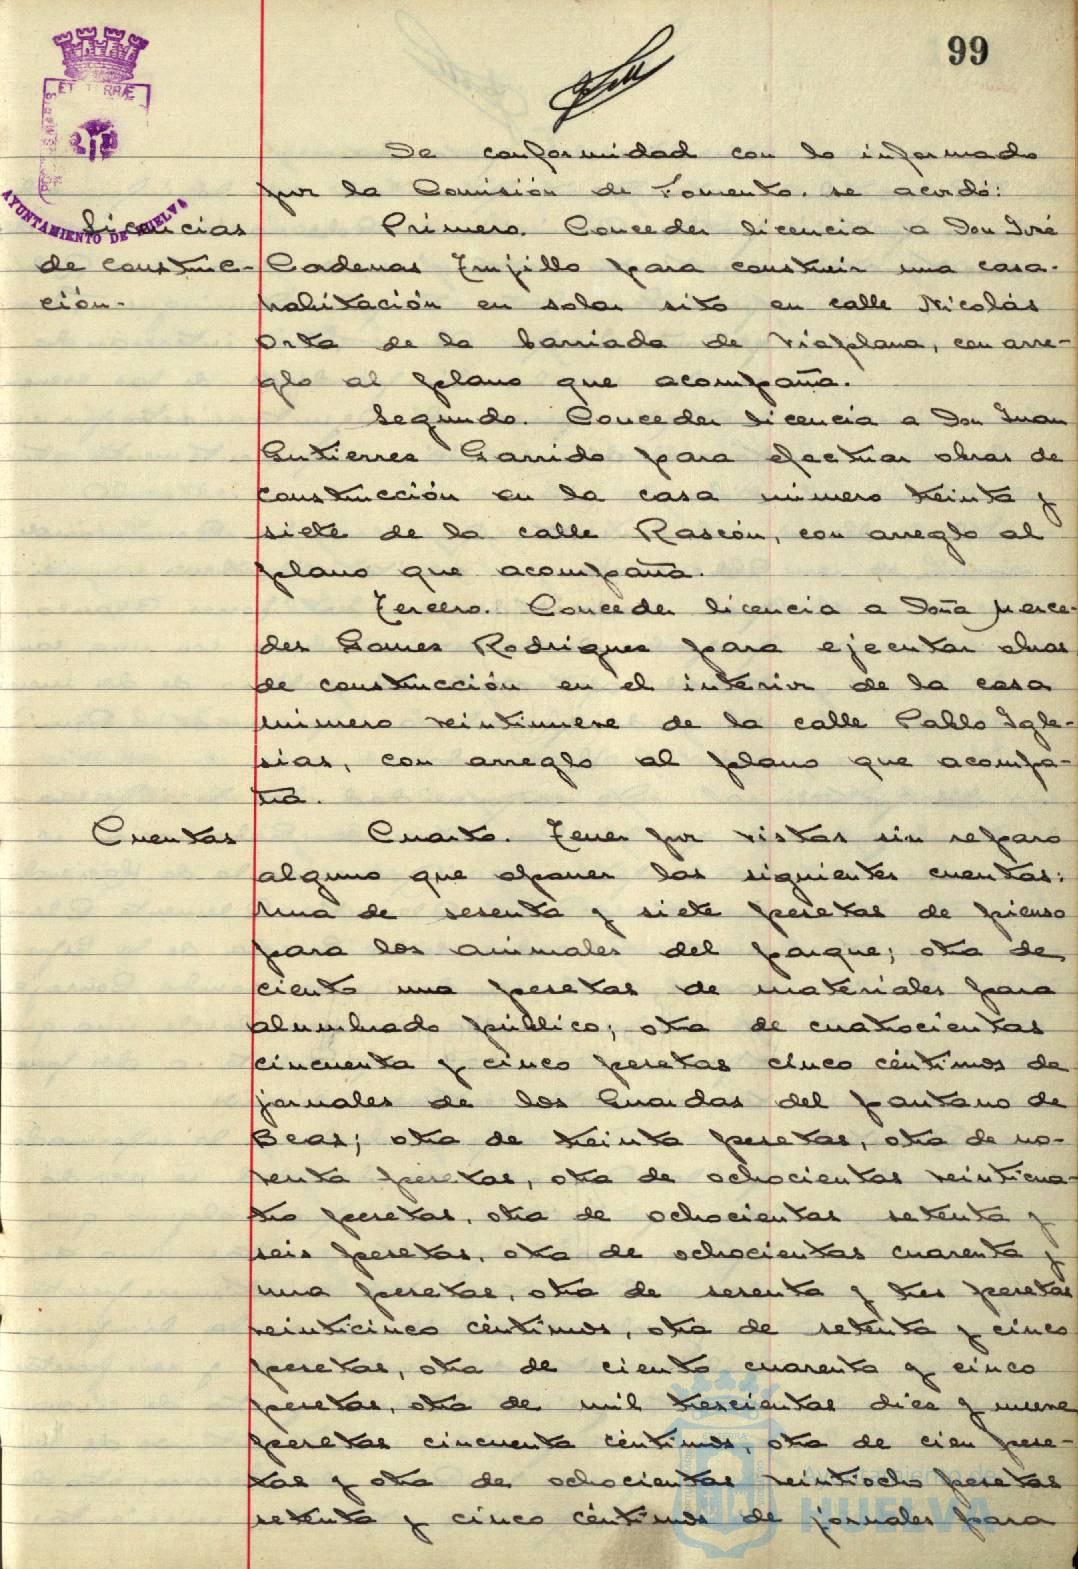 99
De conformidad con lo informado
por la Comisión de Fomento. se acordó:
Licencias
de construc-
ción.
Primero. Conceder licencia a Don José
Cadenas Trujillo para construir una casa-
habitación en solar sito en calle Nicolás
Orta de la barriada de Viaplana, con arre-
glo al plano que acompaña.
Segundo. Conceder licencia a Don Juan
Gutierres Garrido para efectuar obras de
construcción en la casa número treinta y
siete de la calle Rascón, con arreglo al
plano que acompaña.
Tercero. Conceder licencia a Doña Merce-
des Gomes Rodrigues para ejecutar obras
de construcción en el interior de la casa
número veintinueve de la calle Pablo Igle-
sias, con arreglo al plano que acompa-
ña.
Cuentas
Cuarto. Tener por vistas sin reparo
alguno que oponer las siguientes cuentas:
Una de sesenta y siete pesetas de pienso
para los animales del parque; otra de
ciento una pesetas de materiales para
alumbrado público; otra de cuatrocientas
cincuenta y cinco pesetas cinco céntimos de
jornales de los Guardas del pantano de
Beas; otra de treinta pesetas, otra de no-
venta pesetas, otra de ochocientas veinticua-
tro pesetas, otra de ochocientas setenta y
seis pesetas, otra de ochocientas cuarenta y
una pesetas, otra de sesenta y tres pesetas
veinticinco céntimos, otra de setenta y cinco
pesetas, otra de ciento cuarenta y cinco
pesetas, otra de mil trescientas diez y nueve
pesetas cincuenta céntimos, otra de cien pese-
tas y otra de ochocientas veintiocho pesetas
setenta y cinco céntimos de jornales para
AYUNTAMIENTO DE HUELVA
Ayuntamiento de
HUELVA